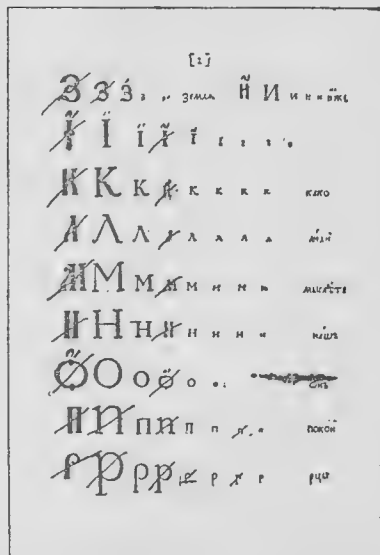 [2]
З З З з з земля Й И и и и иже
Ї Ї ї ї ї ї ї ї
К К к к к к к к како
Л Л л л л л л л
М М м м м м м м мыслѣте
Н Н н н н н н н нашъ
О О о о о о онъ
П П п п п п п п покой
Р Р р р р р р р рцы